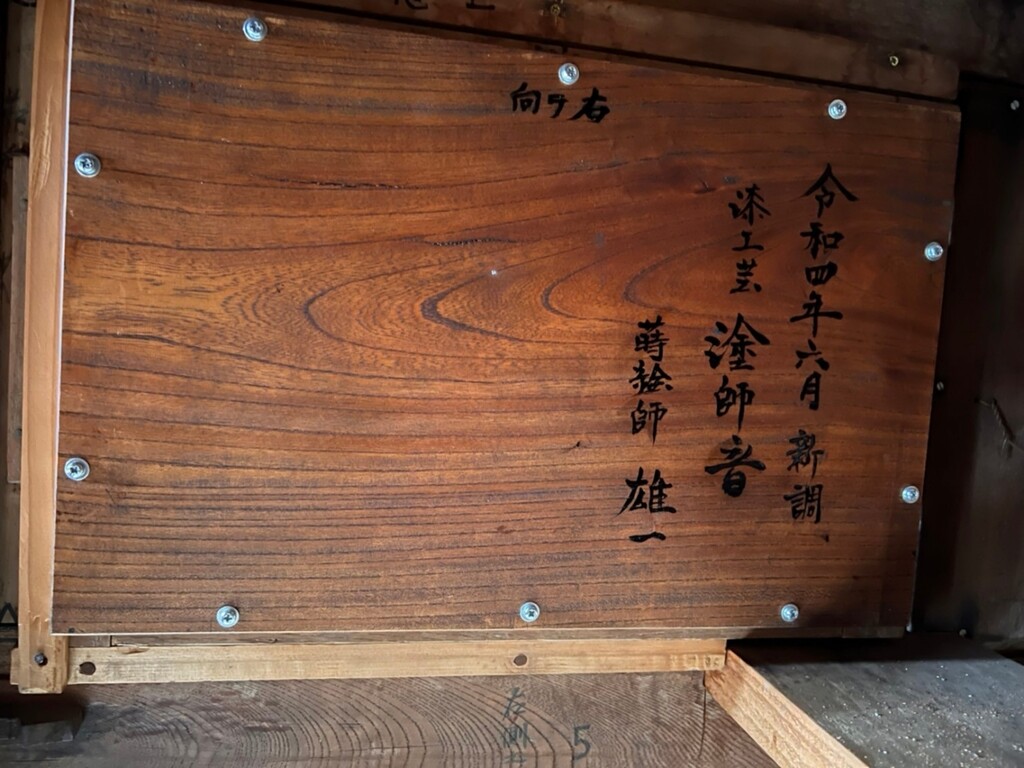 向ヲ右
令和四年六月 新調
漆工芸 塗師 音
蒔絵師 雄一
左側
5